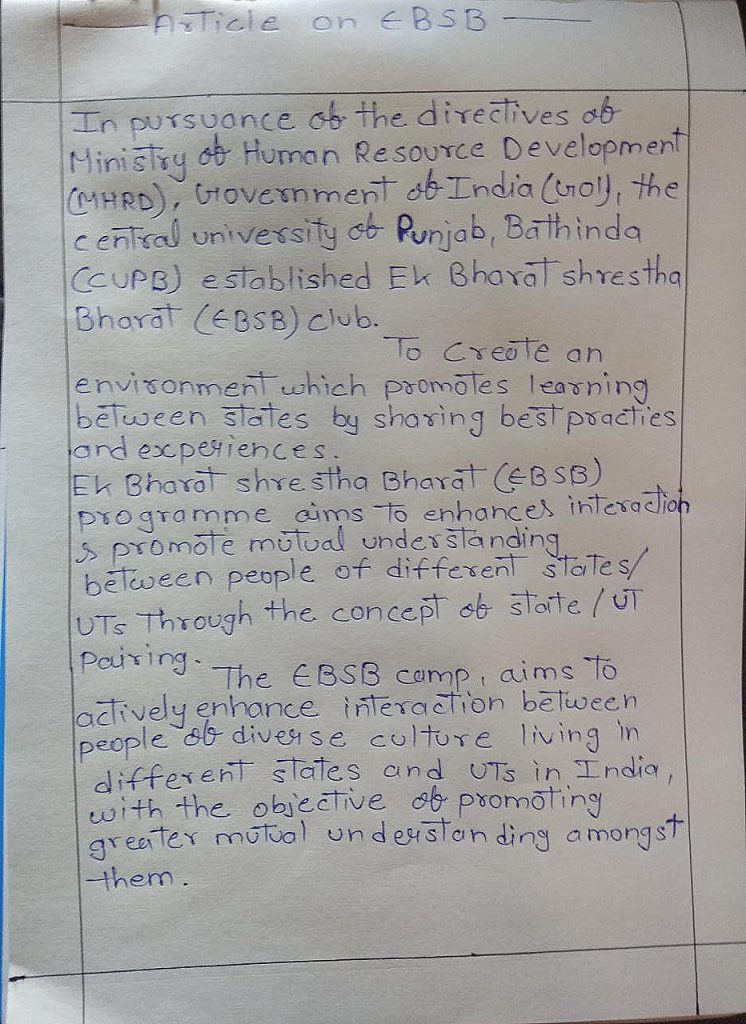 Article on EBSB
In pursuance of the directives of
Ministry of Human Resource Development
(MHRD), Government of India (GOI), the
central university of Punjab, Bathinda
(CUPB) established Ek Bharat shrestha
Bharat (EBSB) club.
To Create an
environment which promotes learning
between states by sharing best practies
and experiences.
Ek Bharat shrestha Bharat (EBSB)
programme aims to enhances interaction
& promote mutual understanding
between people of different states/
UTs Through the concept of state / UT
Pairing.
The EBSB camp, aims to
actively enhance interaction between
people of diverse culture living in
different states and UTs in India,
with the objective of promoting
greater mutual understanding amongst
them.